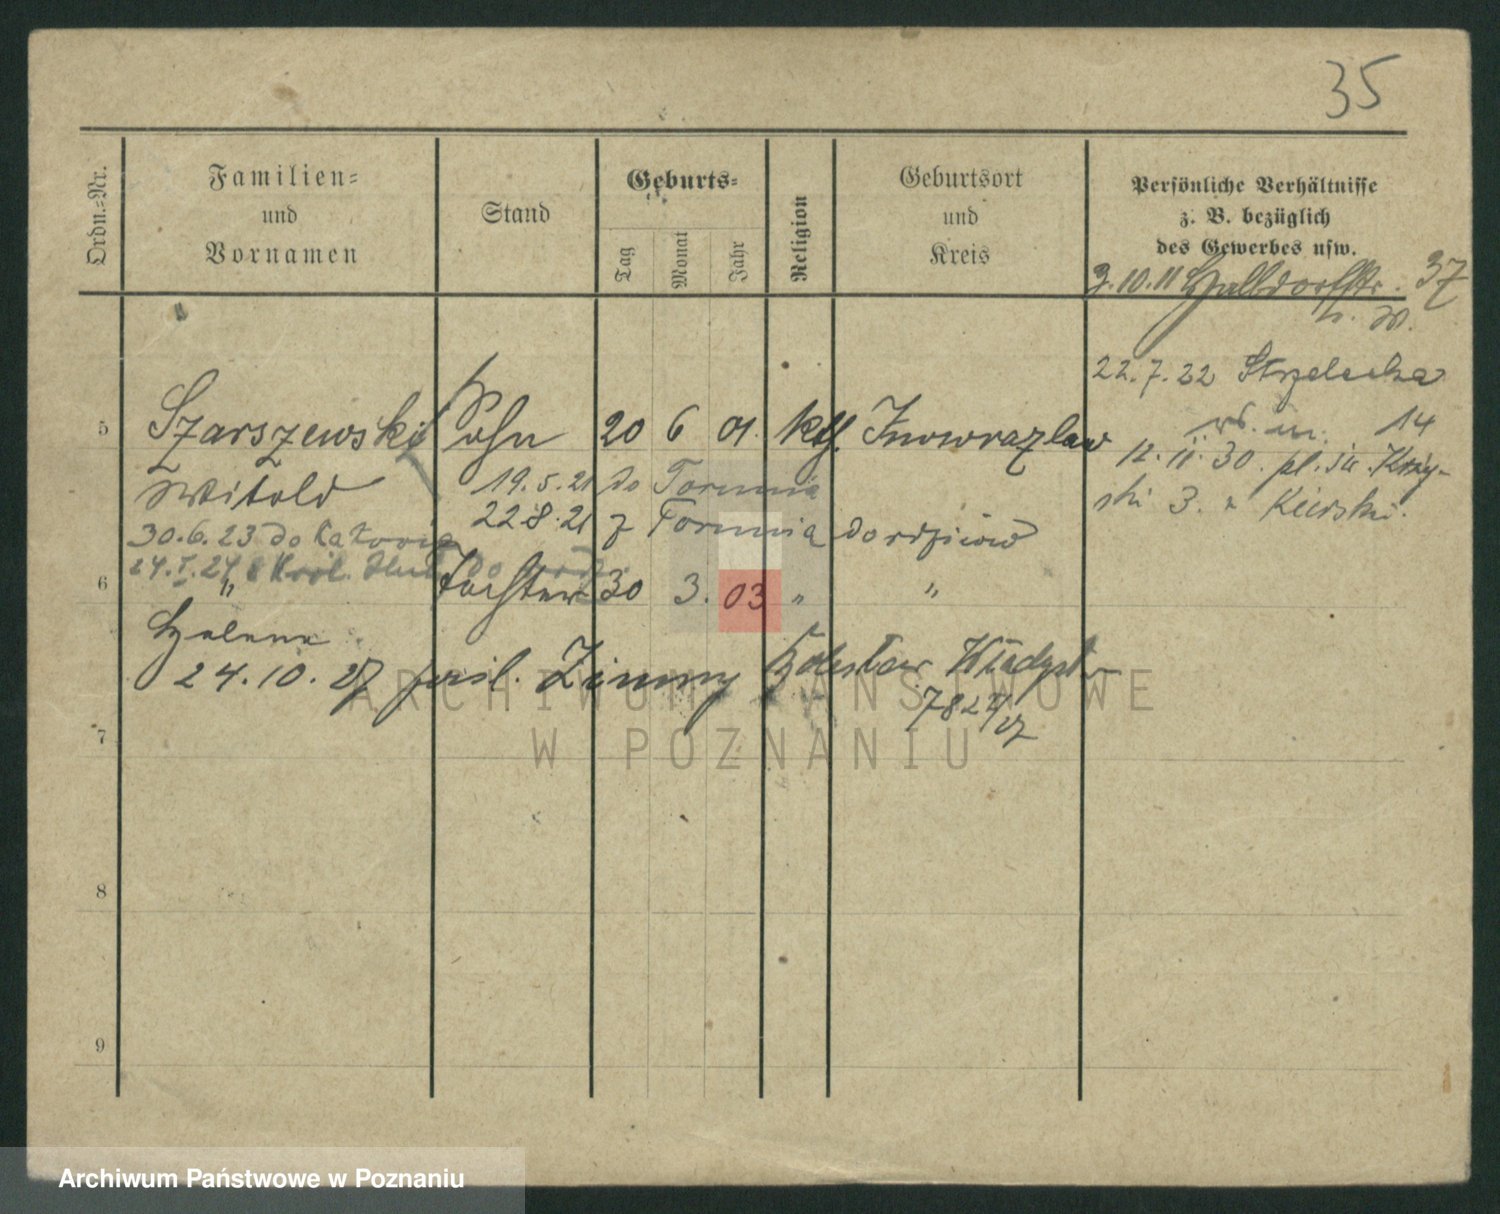 35
Ordn.=Nr.
Familien=
und
Vornamen
Stand
Geburts=
Tag
Monat
Jahr
Religion
Geburtsort
und
Kreis
Persönliche Verhältnisse
z. B. bezüglich
des Gewerbes usw.
3.10.11 Halldorfstr. 37
22.7.22 Strzelecka
14
5 Szarszewski Sohn 20 6 01. kth. Inowrazlaw
12.11.30. pl. św. Krzy-
ski 3.
Witold 19.5.21 do Torunia
22.8.21 z Torunia do rodziców
30.6.23 do Katowic
24.I.24 Król. Hut
6 " Tochter 30 3. 03 " "
Helene
24.10.27 Zimny Bolesław Władysł
7
8
9
ARCHIWUM PAŃSTWOWE
W POZNANIU
Archiwum Państwowe w Poznaniu